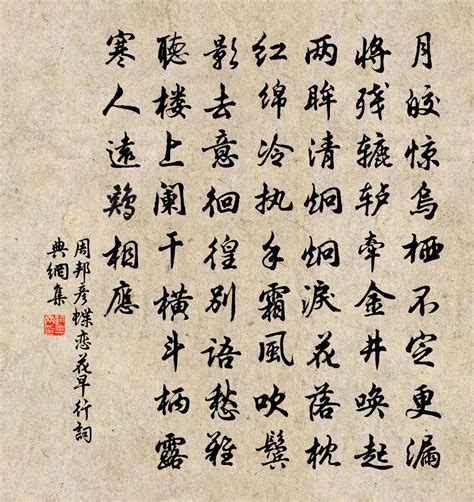 月皎惊乌栖不定更漏
将残辘轳牵金井唤起
两眸清炯炯泪花落枕
红绵冷执手霜風吹鬓
影去意徊徨别语愁难
聴楼上阑干横斗柄露
寒人遠鸡相應
周邦彦蝶恋花早行詞
典網集